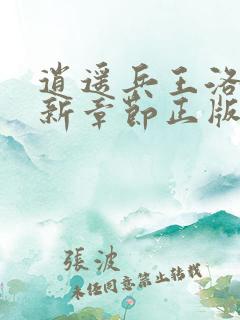 逍遥兵王洛
新章節正版
張波
未经同意禁止转载